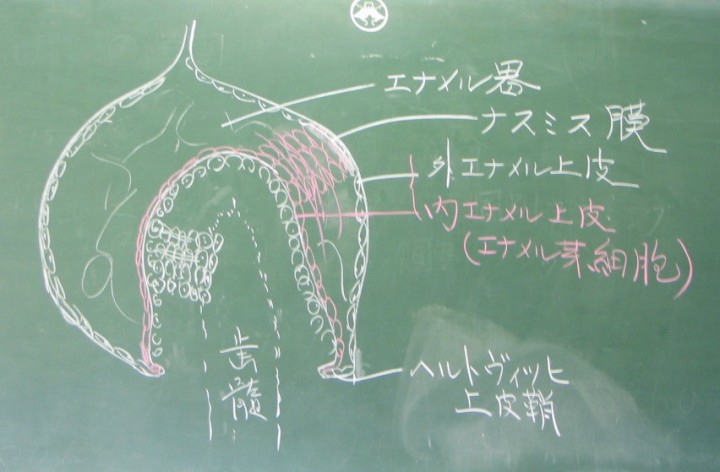 エナメル器
ナスミス膜
外エナメル上皮
内エナメル上皮
(エナメル芽細胞)
歯髄
ヘルトヴィッヒ
上皮鞘